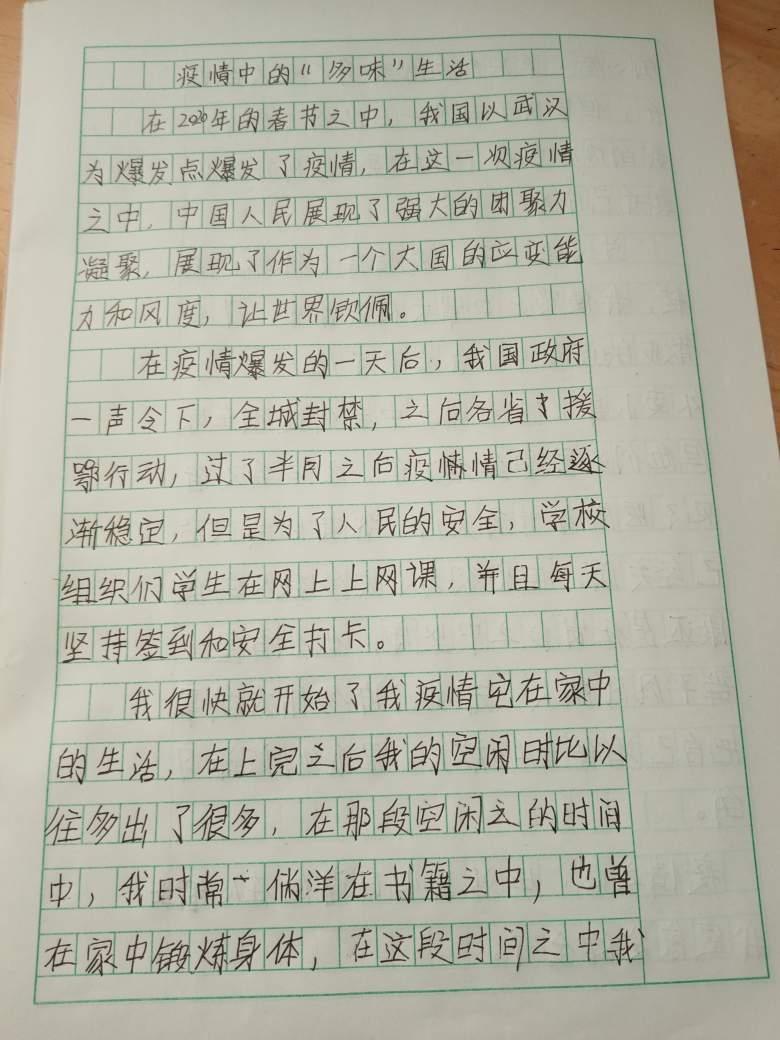 疫情中的“多味”生活
在2020年的春节之中，我国以武汉
为爆发点爆发了疫情，在这一次疫情
之中，中国人民展现了强大的团聚力
凝聚，展现了作为一个大国的应变能
力和风度，让世界钦佩。
在疫情爆发的一天后，我国政府
一声令下，全城封禁，之后各省援
鄂行动，过了半月之后疫情已经逐
渐稳定，但是为了人民的安全，学校
组织们学生在网上上网课，并且每天
坚持签到和安全打卡。
我很快就开始了我疫情宅在家中
的生活，在上完之后我的空闲时比以
往多出了很多，在那段空闲之的时间
中，我时常徜洋在书籍之中，也曾
在家中锻炼身体，在这段时间之中我